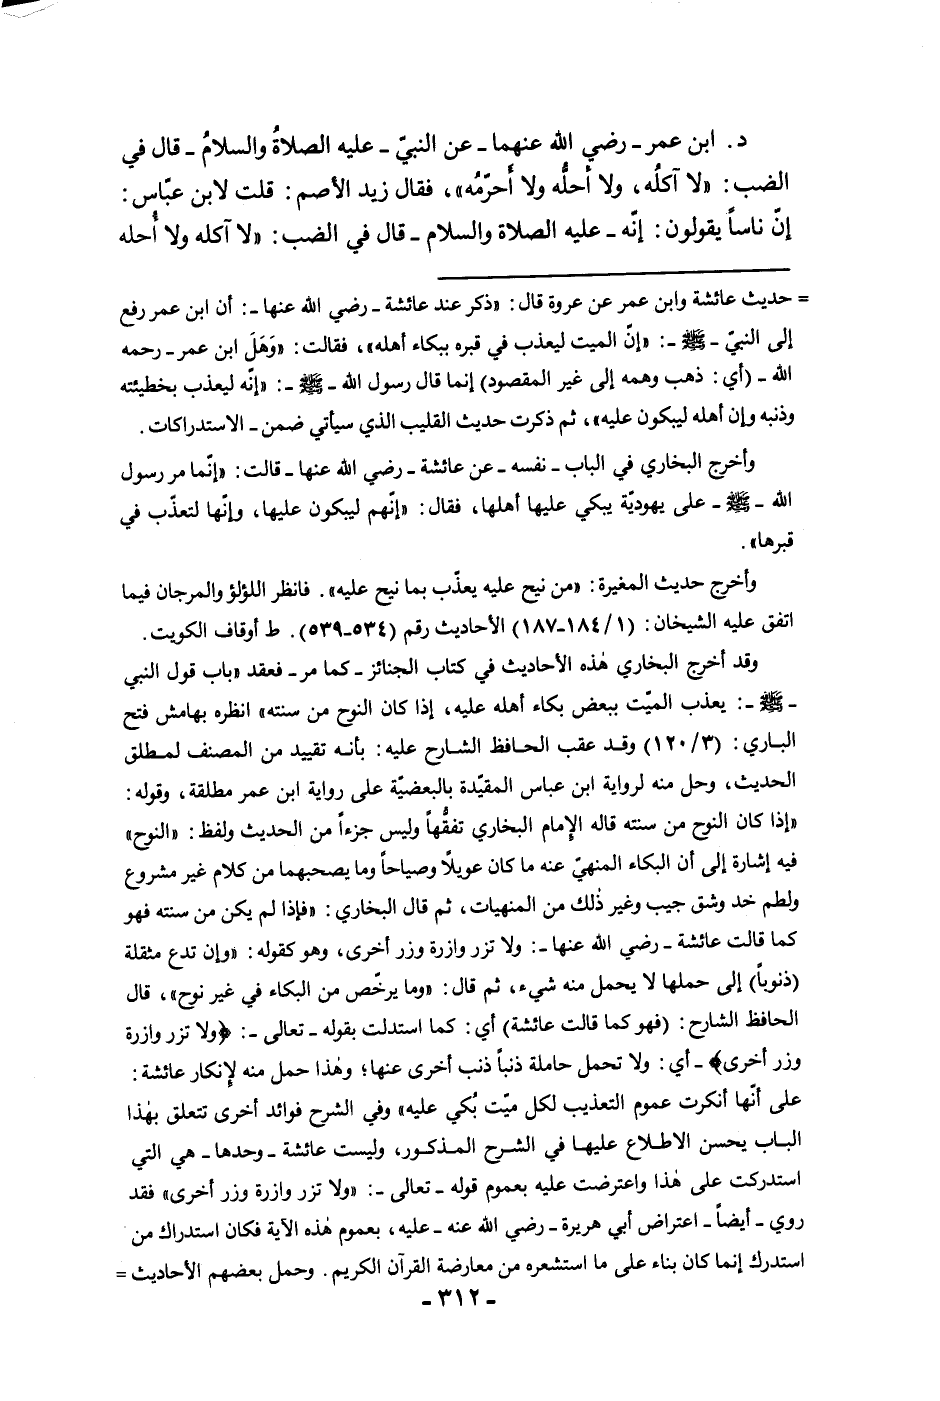 د. ابن عمر ـ رضي الله عنهما ـ عن النبيّ ـ عليه الصلاةُ والسلامُ ـ قال في
الضب: «لا آكلُه، ولا أحلُّه ولا أحرّمُه»، فقال زيد الأصم: قلت لابن عبّاس:
إنّ ناساً يقولون: إنّه ـ عليه الصلاة والسلام ـ قال في الضب: «لا آكله ولا أُحله
= حديث عائشة وابن عمر عن عروة قال: «ذكر عند عائشة ـ رضي الله عنها ـ: أن ابن عمر رفع
إلى النبيّ ـ ﷺ ـ: «إنّ الميت ليعذب في قبره ببكاء أهله»، فقالت: «وَهَلَ ابن عمر ـ رحمه
الله ـ (أي: ذهب وهمه إلى غير المقصود) إنما قال رسول الله ـ ﷺ ـ: «إنّه ليعذب بخطيئته
وذنبه وإن أهله ليبكون عليه»، ثم ذكرت حديث القليب الذي سيأتي ضمن ـ الاستدراكات.
وأخرج البخاري في الباب ـ نفسه ـ عن عائشة ـ رضي الله عنها ـ قالت: «إنّما مر رسول
الله ـ ﷺ ـ على يهوديّة يبكي عليها أهلها، فقال: «إنّهم ليبكون عليها، وإنّها لتعذّب في
قبرها».
وأخرج حديث المغيرة: «من نيح عليه يعذّب بما نيح عليه». فانظر اللؤلؤ والمرجان فيما
اتفق عليه الشيخان: (١/١٨٤ـ١٨٧) الأحاديث رقم (٥٣٤ـ٥٣٩). ط أوقاف الكويت.
وقد أخرج البخاري هٰذه الأحاديث في كتاب الجنائز ـ كما مر ـ فعقد «باب قول النبي
ـ ﷺ ـ: يعذب الميّت ببعض بكاء أهله عليه، إذا كان النوح من سنته» انظره بهامش فتح
الباري: (٣/١٢٠) وقد عقب الحافظ الشارح عليه: بأنه تقييد من المصنف لمطلق
الحديث، وحل منه لرواية ابن عباس المقيّدة بالبعضيّة على رواية ابن عمر مطلقة، وقوله:
«إذا كان النوح من سنته قاله الإمام البخاري تفقُّهاً وليس جزءاً من الحديث ولفظ: «النوح»
فيه إشارة إلى أن البكاء المنهيّ عنه ما كان عويلاً وصياحاً وما يصحبهما من كلام غير مشروع
ولطم خد وشق جيب وغير ذٰلك من المنهيات، ثم قال البخاري: «فإذا لم يكن من سنته فهو
كما قالت عائشة ـ رضي الله عنها ـ: ولا تزر وازرة وزر أخرى، وهو كقوله: «وإن تدع مثقلة
(ذنوباً) إلى حملها لا يحمل منه شيء، ثم قال: «وما يرخّص من البكاء في غير نوح»، قال
الحافظ الشارح: (فهو كما قالت عائشة) أي: كما استدلت بقوله ـ تعالى ـ: ﴿ولا تزر وازرة
وزر أخرى﴾ ـ أي: ولا تحمل حاملة ذنباً ذنب أخرى عنها؛ وهٰذا حمل منه لإنكار عائشة:
على أنّها أنكرت عموم التعذيب لكل ميّت بُكي عليه» وفي الشرح فوائد أخرى تتعلق بهٰذا
الباب يحسن الاطلاع عليها في الشرح المذكور، وليست عائشة ـ وحدها ـ هي التي
استدركت على هٰذا واعترضت عليه بعموم قوله ـ تعالى ـ: «ولا تزر وازرة وزر أخرى» فقد
روي ـ أيضاً ـ اعتراض أبي هريرة ـ رضي الله عنه ـ عليه، بعموم هٰذه الآية فكان استدراك من
استدرك إنما كان بناء على ما استشعره من معارضة القرآن الكريم. وحمل بعضهم الأحاديث =
ـ ٣١٢ ـ